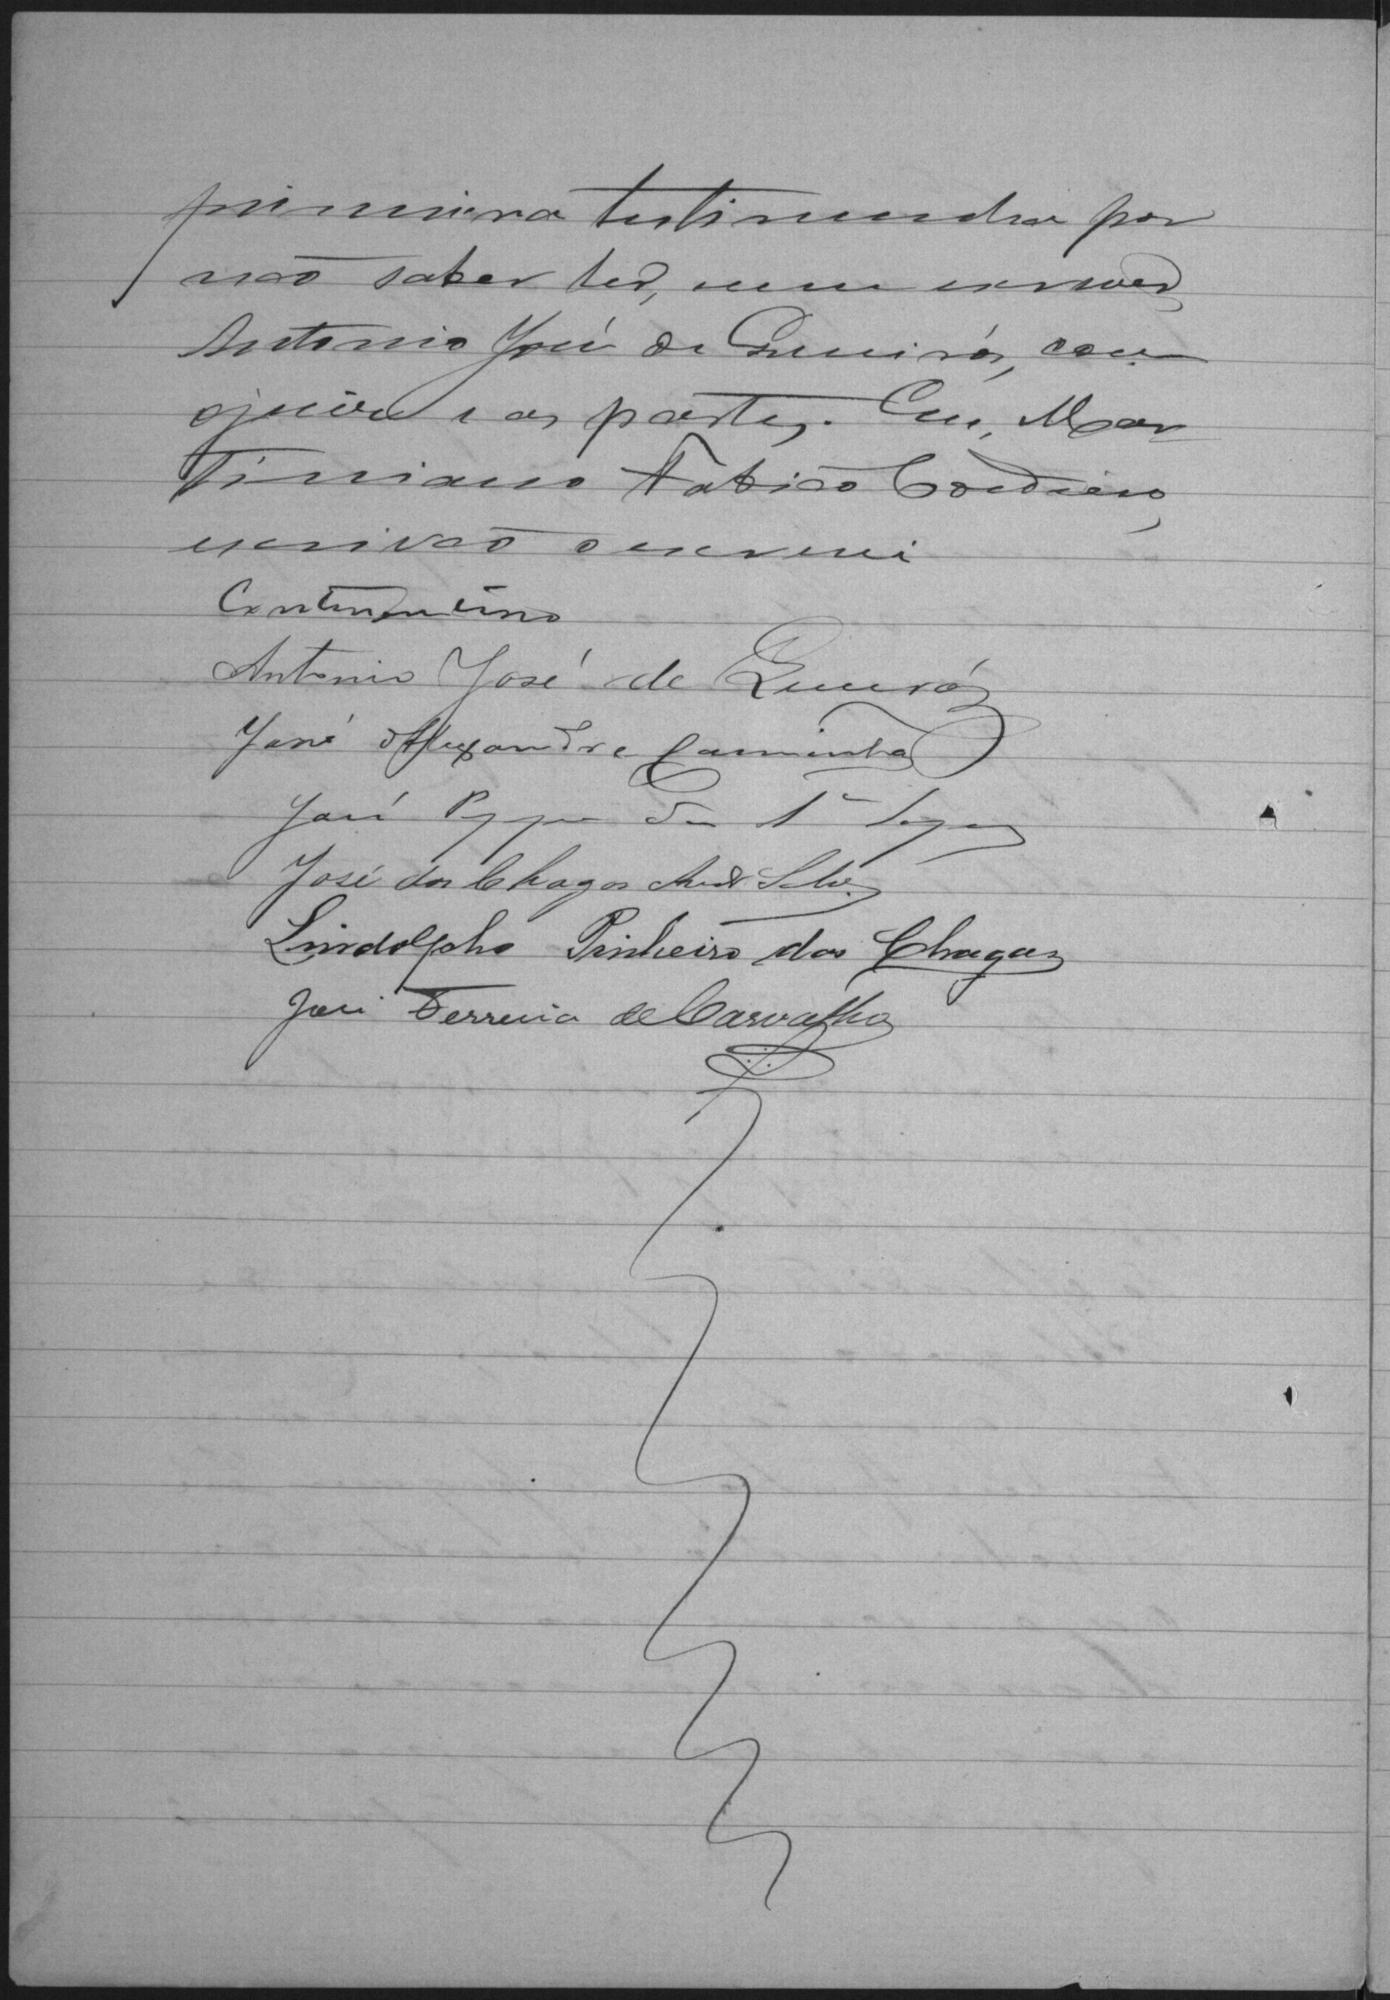 primeira testimunha por
não saber ler, nem escrever
Antonio José de Queirós, com
ojuiz e as partes. Eu, Mar
timiano Fabião Cordeiro,
escrivão o escrevi
Continentino
Antonio José de Queirós
José Alexandre Caminha
José
José das Chagas
Lindolpho Pinheiro das Chagas
José Ferreira de Carvalho